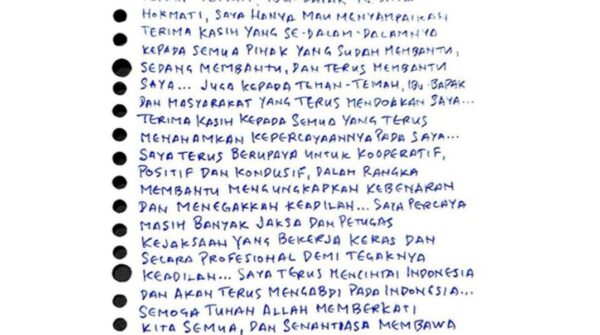 HORMATI, SAYA HANYA MAU MENYAMPAIKAN
TERIMA KASIH YANG SE-DALAM-DALAMNYA
KEPADA SEMUA PIHAK YANG SUDAH MEMBANTU,
SEDANG MEMBANTU, DAN TERUS MEMBANTU
SAYA... JUGA KEPADA TEMAN-TEMAN, IBU-BAPAK
DAN MASYARAKAT YANG TERUS MENDOAKAN SAYA...
TERIMA KASIH KEPADA SEMUA YANG TERUS
MENANAMKAN KEPERCAYAANNYA PADA SAYA...
SAYA TERUS BERUPAYA UNTUK KOOPERATIF,
POSITIF DAN KONDUSIF, DALAM RANGKA
MEMBANTU MENGUNGKAPKAN KEBENARAN
DAN MENEGAKKAN KEADILAN... SAYA PERCAYA
MASIH BANYAK JAKSA DAN PETUGAS
KEJAKSAAN YANG BEKERJA KERAS DAN
SECARA PROFESIONAL DEMI TEGAKNYA
KEADILAN... SAYA TERUS MENCINTAI INDONESIA
DAN AKAN TERUS MENGABDI PADA INDONESIA...
SEMOGA TUHAN ALLAH MEMBERKATI
KITA SEMUA, DAN SENANTIASA MEMBAWA